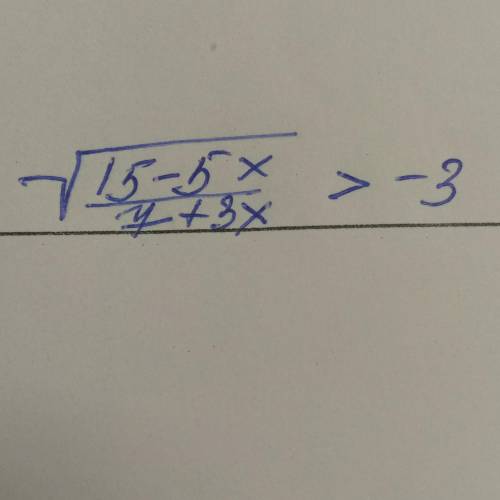 √(15-5x / 7+3x) > -3